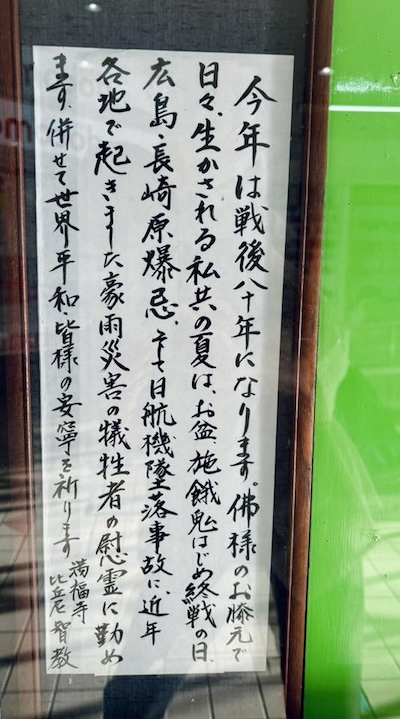 今年は戦後八十年になります。佛様のお膝元で
日々、生かされる私共の夏は、お盆、施餓鬼はじめ終戦の日、
広島・長崎原爆忌、そして日航機墜落事故に、近年
各地で起きました豪雨災害の犠牲者の慰霊に勤め
ます。併せて世界平和、皆様の安寧を祈ります
満福寺
比丘尼 智教